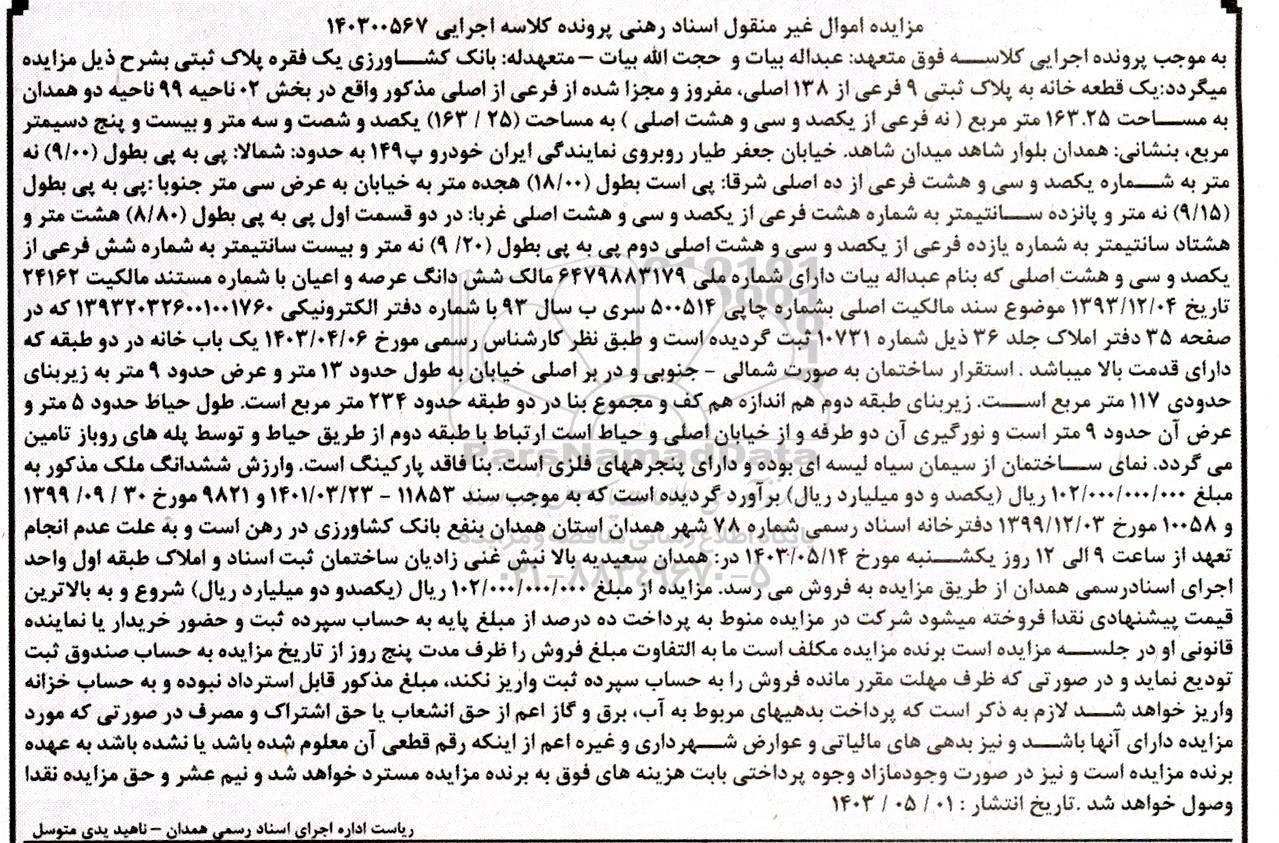 مزایده اموال غیر منقول اسناد رهنی پرونده کلاسه اجرایی ۱۴۰۳۰۰۵۶۷
به موجب پرونده اجرایی کلاسه فوق متعهد: عبداله بیات و حجت الله بیات – متعهدله: بانک کشاورزی یک فقره پلاک ثبتی بشرح ذیل مزایده
میگردد:یک قطعه خانه به پلاک ثبتی ۹ فرعی از ۱۳۸ اصلی، مفروز و مجزا شده از فرعی از اصلی مذکور واقع در بخش ۰۲ ناحیه ۹۹ ناحیه دو همدان
به مساحت ۱۶۳.۲۵ متر مربع ( نه فرعی از یکصد و سی و هشت اصلی ) به مساحت (۲۵ / ۱۶۳) یکصد و شصت و سه متر و بیست و پنج دسیمتر
مربع، بنشانی: همدان بلوار شاهد میدان شاهد. خیابان جعفر طیار روبروی نمایندگی ایران خودرو پ۱۴۹ به حدود: شمالا: پی به پی بطول (۹/۰۰) نه
متر به شماره یکصد و سی و هشت فرعی از ده اصلی شرقا: پی است بطول (۱۸/۰۰) هجده متر به خیابان به عرض سی متر جنوبا :پی به پی بطول
(۹/۱۵) نه متر و پانزده سانتیمتر به شماره هشت فرعی از یکصد و سی و هشت اصلی غربا: در دو قسمت اول پی به پی بطول (۸/۸۰) هشت متر و
هشتاد سانتیمتر به شماره یازده فرعی از یکصد و سی و هشت اصلی دوم پی به پی بطول (۲۰/ ۹) نه متر و بیست سانتیمتر به شماره شش فرعی از
یکصد و سی و هشت اصلی که بنام عبداله بیات دارای شماره ملی ۶۴۷۹۸۸۳۱۷۹ مالک شش دانگ عرصه و اعیان با شماره مستند مالکیت ۲۴۱۶۲
تاریخ ۱۳۹۳/۱۲/۰۴ موضوع سند مالکیت اصلی بشماره چاپی ۵۰۰۵۱۴ سری ب سال ۹۳ با شماره دفتر الکترونیکی ۱۳۹۳۲۰۳۲۶۰۰۱۰۰۱۷۶۰ که در
صفحه ۳۵ دفتر املاک جلد ۳۶ ذیل شماره ۱۰۷۳۱ ثبت گردیده است و طبق نظر کارشناس رسمی مورخ ۱۴۰۳/۰۴/۰۶ یک باب خانه در دو طبقه که
دارای قدمت بالا میباشد . استقرار ساختمان به صورت شمالی – جنوبی و در بر اصلی خیابان به طول حدود ۱۳ متر و عرض حدود ۹ متر به زیربنای
حدودی ۱۱۷ متر مربع است. زیربنای طبقه دوم هم اندازه هم کف و مجموع بنا در دو طبقه حدود ۲۳۴ متر مربع است. طول حیاط حدود ۵ متر و
عرض آن حدود ۹ متر است و نورگیری آن دو طرفه و از خیابان اصلی و حیاط است ارتباط با طبقه دوم از طریق حیاط و توسط پله های روباز تامین
می گردد. نمای ساختمان از سیمان سیاه لیسه ای بوده و دارای پنجرههای فلزی است. بنا فاقد پارکینگ است. وارزش ششدانگ ملک مذکور به
مبلغ ۱۰۲/۰۰۰/۰۰۰/۰۰۰ ریال (یکصد و دو میلیارد ریال) برآورد گردیده است که به موجب سند ۱۱۸۵۳ – ۱۴۰۱/۰۳/۲۳ و ۹۸۲۱ مورخ ۳۰ / ۰۹/ ۱۳۹۹
و ۱۰۰۵۸ مورخ ۱۳۹۹/۱۲/۰۳ دفترخانه اسناد رسمی شماره ۷۸ شهر همدان استان همدان بنفع بانک کشاورزی در رهن است و به علت عدم انجام
تعهد از ساعت ۹ الی ۱۲ روز یکشنبه مورخ ۱۴۰۳/۰۵/۱۴ در: همدان سعیدیه بالا نبش غنی زادیان ساختمان ثبت اسناد و املاک طبقه اول واحد
اجرای اسنادرسمی همدان از طریق مزایده به فروش می رسد. مزایده از مبلغ ۱۰۲/۰۰۰/۰۰۰/۰۰۰ ریال (یکصدو دو میلیارد ریال) شروع و به بالاترین
قیمت پیشنهادی نقدا فروخته میشود شرکت در مزایده منوط به پرداخت ده درصد از مبلغ پایه به حساب سپرده ثبت و حضور خریدار یا نماینده
قانونی او در جلسه مزایده است برنده مزایده مکلف است ما به التفاوت مبلغ فروش را ظرف مدت پنج روز از تاریخ مزایده به حساب صندوق ثبت
تودیع نماید و در صورتی که ظرف مهلت مقرر مانده فروش را به حساب سپرده ثبت واریز نکند، مبلغ مذکور قابل استرداد نبوده و به حساب خزانه
واریز خواهد شد لازم به ذکر است که پرداخت بدهیهای مربوط به آب، برق و گاز اعم از حق انشعاب یا حق اشتراک و مصرف در صورتی که مورد
مزایده دارای آنها باشد و نیز بدهی های مالیاتی و عوارض شهرداری و غیره اعم از اینکه رقم قطعی آن معلوم شده باشد یا نشده باشد به عهده
برنده مزایده است و نیز در صورت وجودمازاد وجوه پرداختی بابت هزینه های فوق به برنده مزایده مسترد خواهد شد و نیم عشر و حق مزایده نقدا
وصول خواهد شد .تاریخ انتشار : ۰۱ / ۰۵ / ۱۴۰۳
ریاست اداره اجرای اسناد رسمی همدان – ناهید یدی متوسل
ParsNamadData
پایگاه اطلاع رسانی مناقصه و مزایده
۰۲۱-۸۸۳۴۹۶۷۰-۵